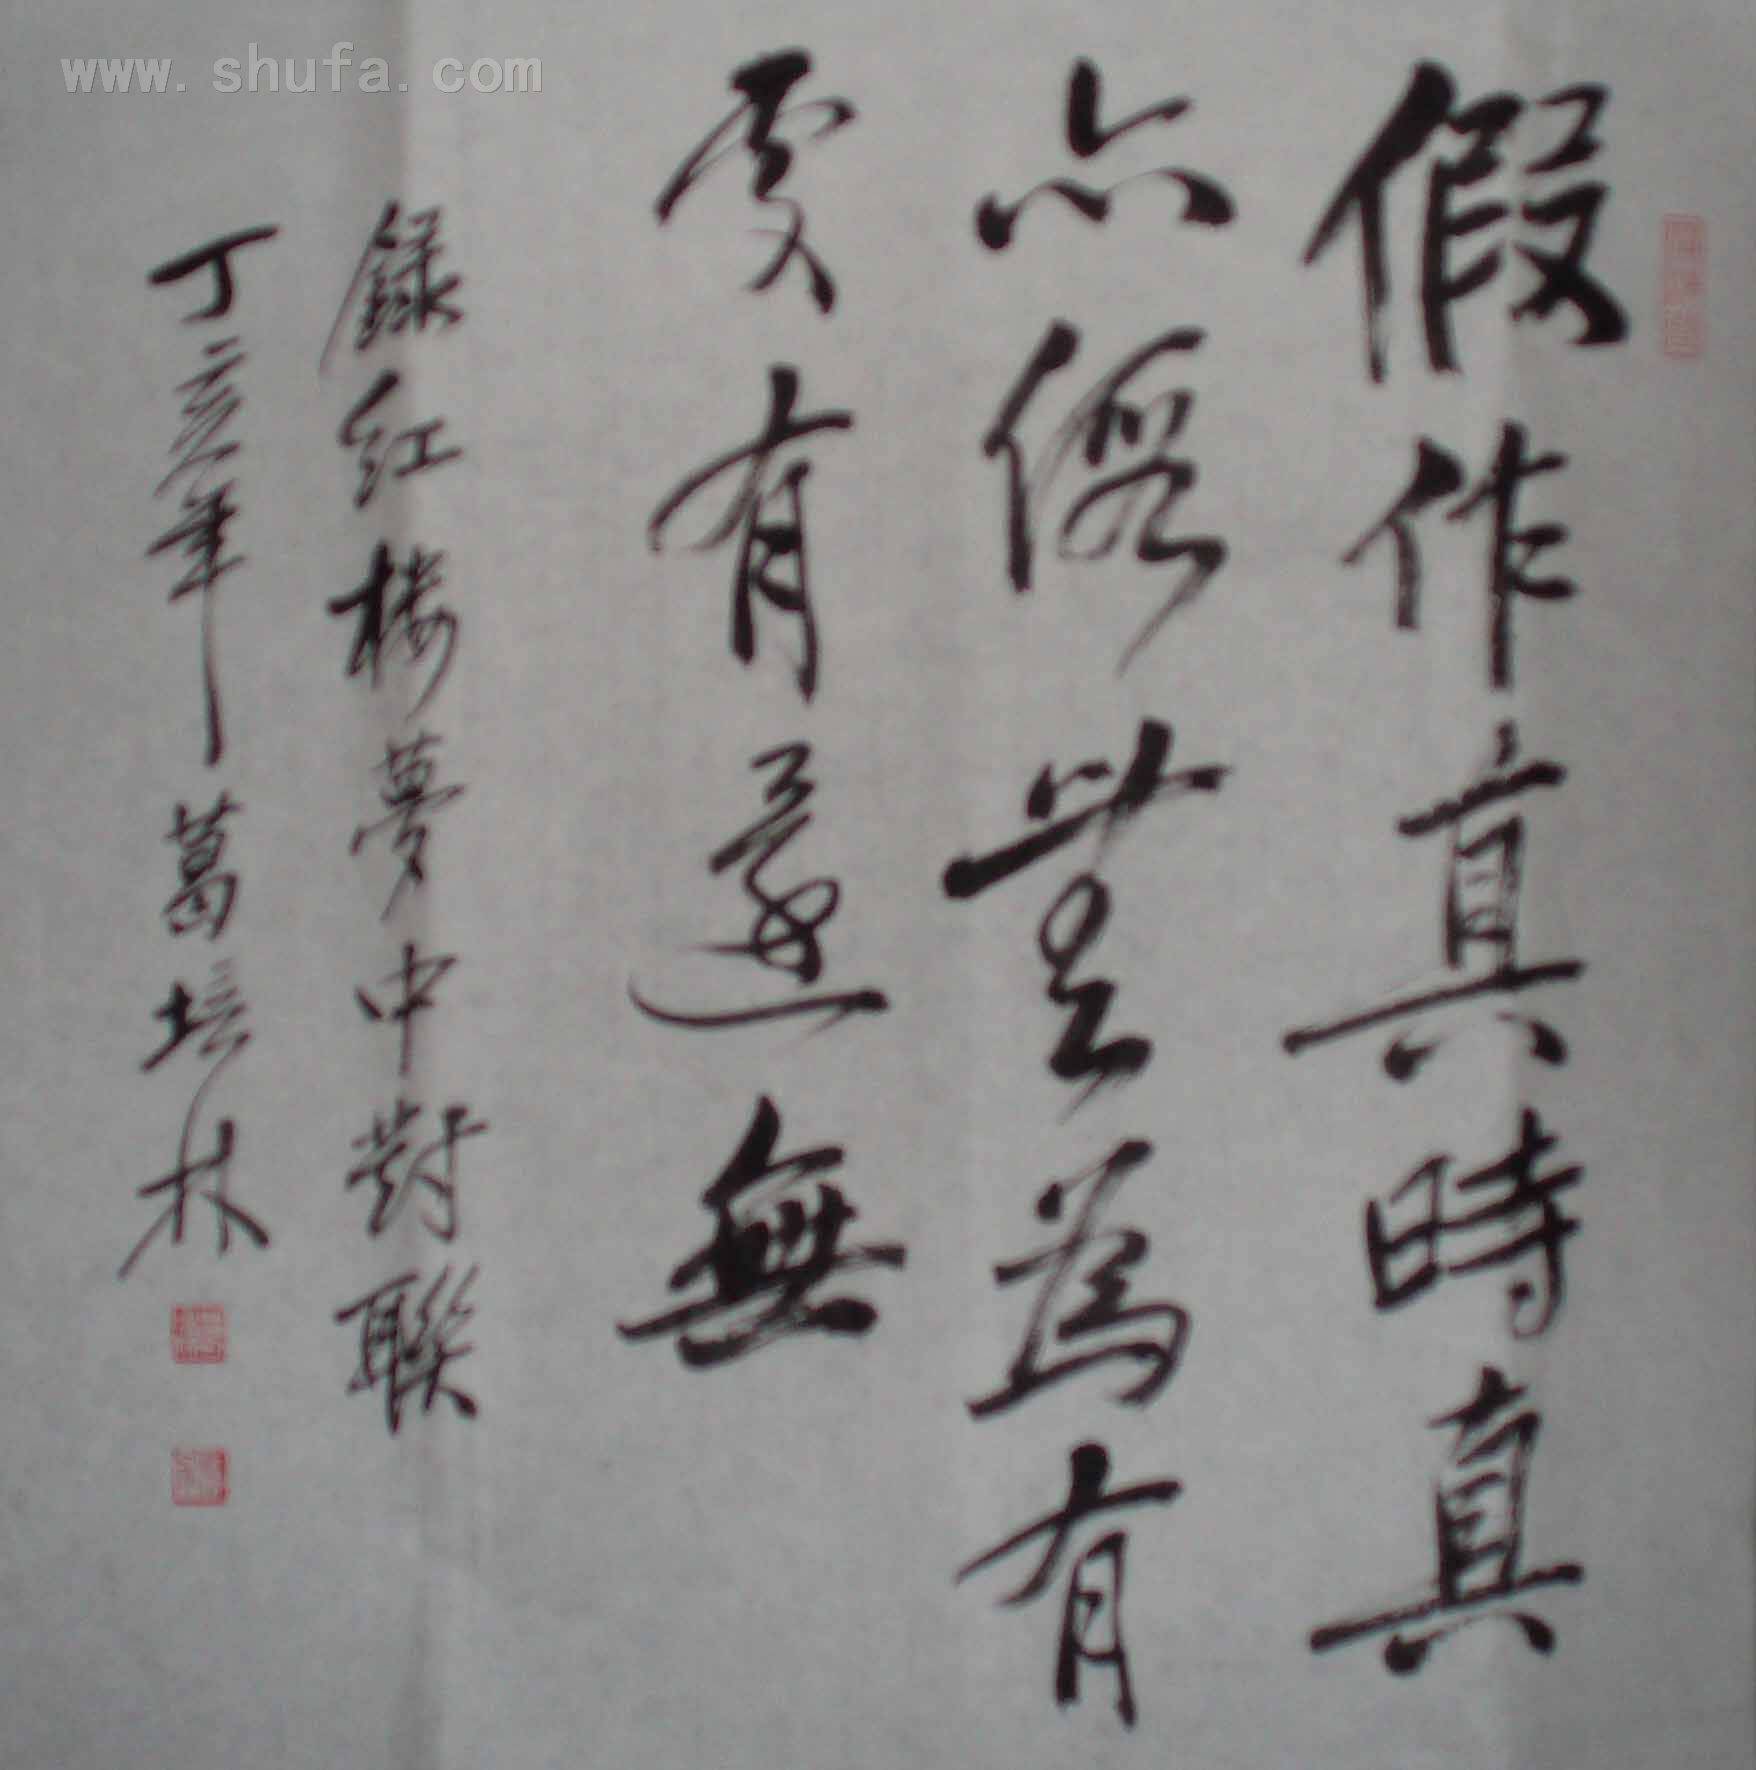 www.shufa.com
假作真時真
亦假無為有
處有還無
錄紅楼夢中對聯
丁亥年葛培林